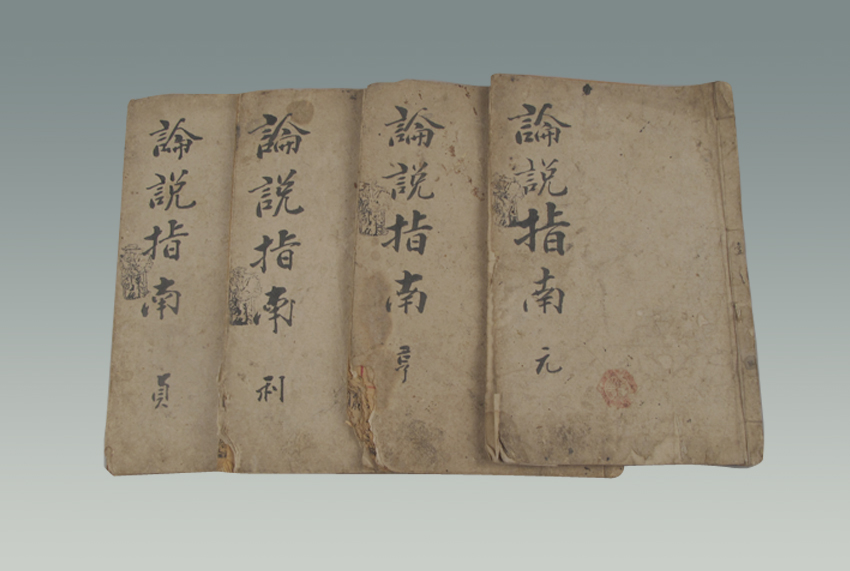 論說指南 元
論說指南 亨
論說指南 利
論說指南 貞